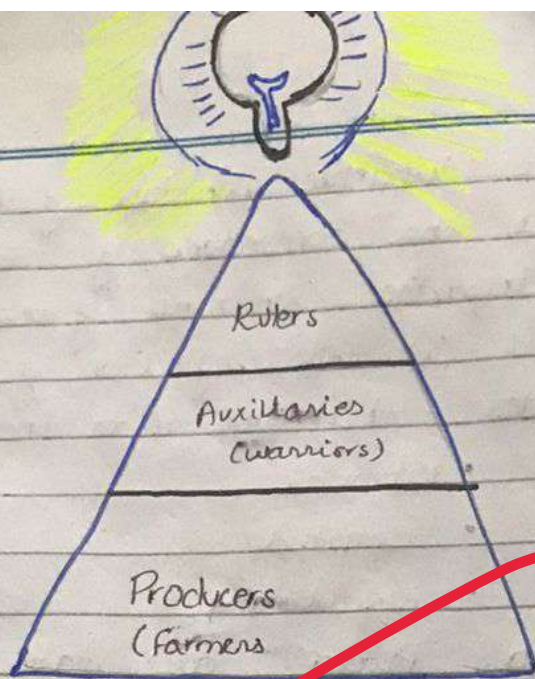 Rulers
Auxillaries
(warriors)
Producers
(Farmers